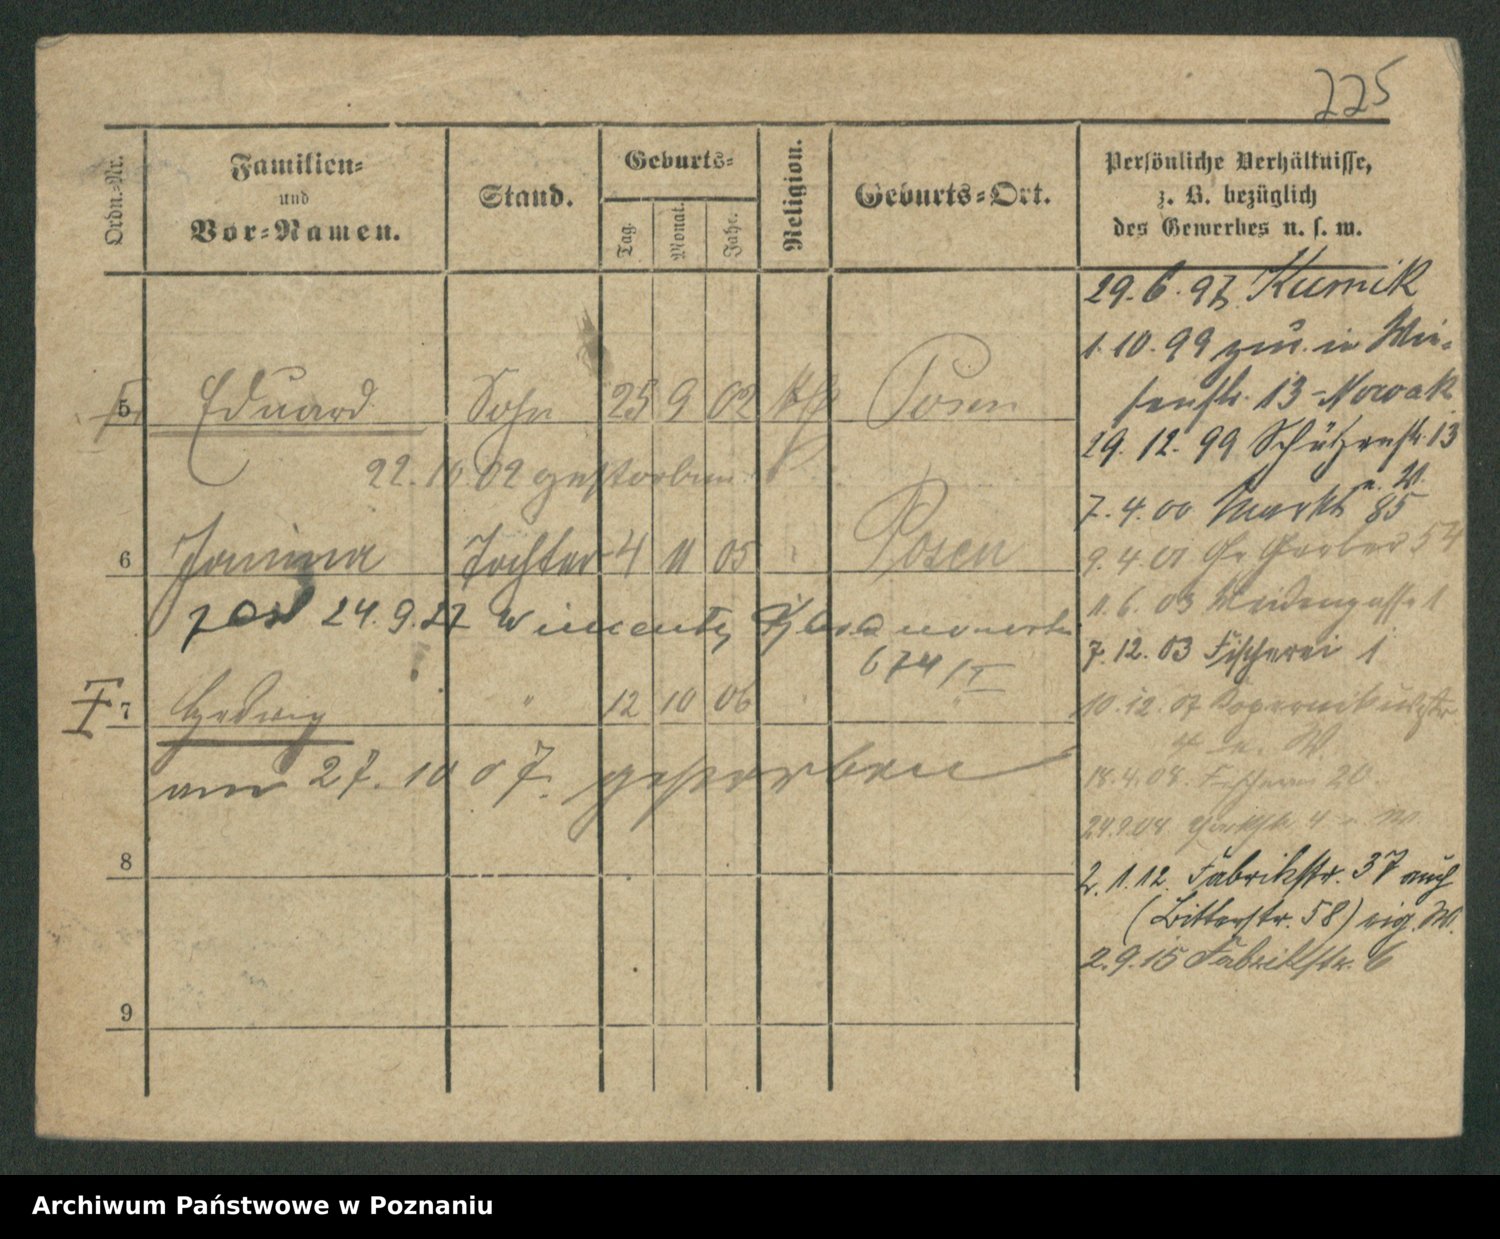 225
Ordn.-Nr.
Familien-
und
Vor-Namen.
Stand.
Geburts-
Tag.
Monat.
Jahr.
Religion.
Geburts-Ort.
Persönliche Verhältnisse,
z. B. bezüglich
des Gewerbes u. s. w.
5 Eduard Sohn 25 9 02 kth Posen
22.10.02 gestorben
6 Janina Tochter 4 11 05 Posen
24.9.27
674/I
7 Hedwig " 12 10 06 "
am 27.10 07. gestorben
8
9
29.6.97 Kurnik
1.10.99 zur. in Wie-
senstr. 13 Nowak
29.12.99 Schützenstr. 13
u. W.
7.4.00 Markt 85
9.4.01 Gr Gerber 54
11.6.03 Weidengasse 1
7.12.03 Fischerei 1
10.12.07 Kopernikusstr.
4 u. W
18.4.08. Fischerei 20
4 u W
2.1.12. Fabrikstr. 37 auch
(Bitterstr. 58) eig. W.
2.9.15 Fabrikstr. 6
Archiwum Państwowe w Poznaniu